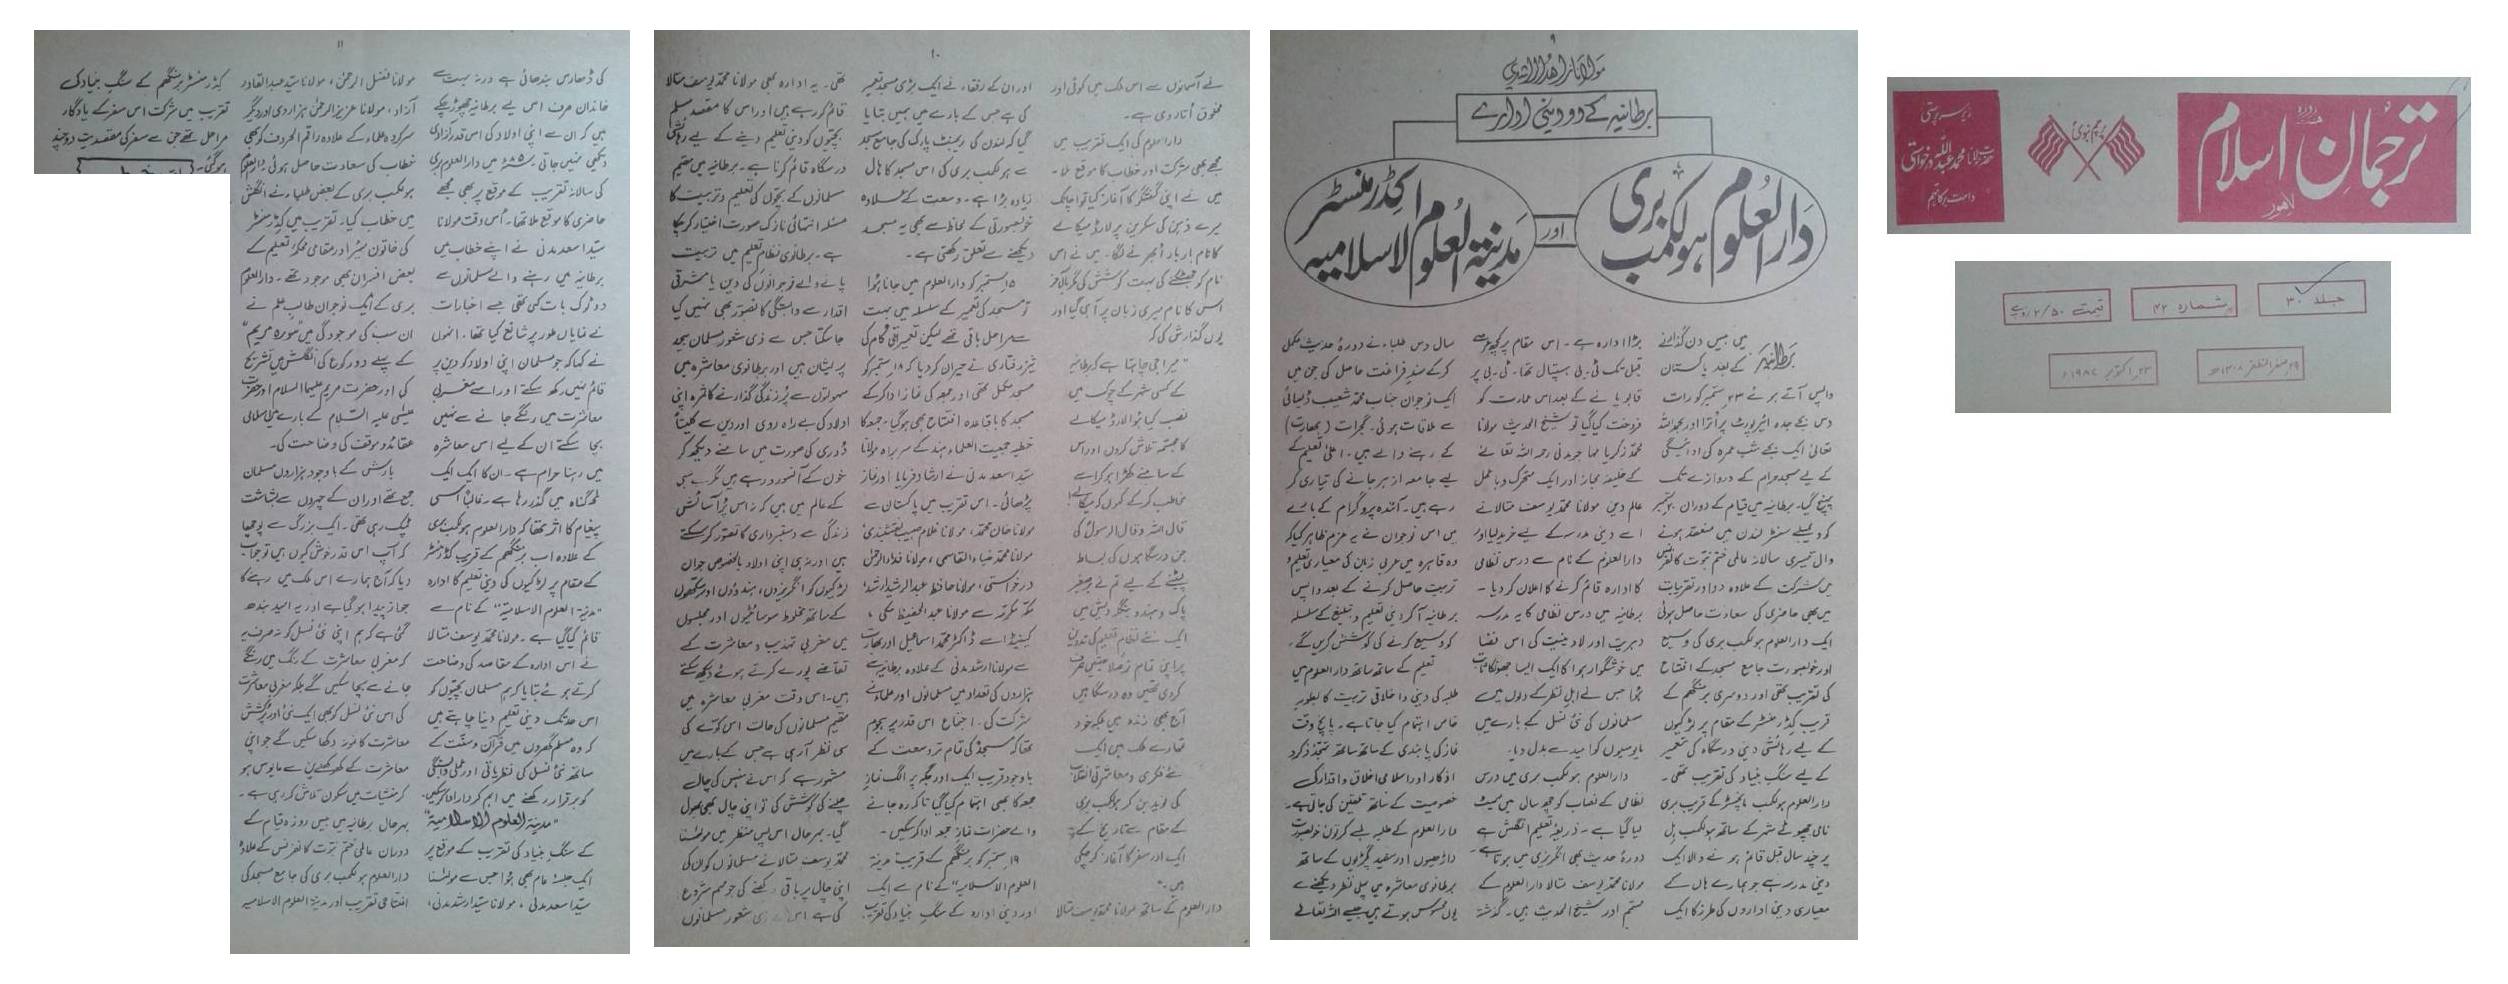 ہفت روزہ
ترجمانِ اسلام
لاہور
پرچم نبویؐ
زیر سرپرستی
حضرت مولانا محمد عبداللہ درخواستی
دامت برکاتہم
جلد ۳۰
شمارہ ۴۲
قیمت ۲/۵۰ روپے
۲۹ صفر المظفر ۱۴۰۸ھ
۲۳ اکتوبر ۱۹۸۷ء
۹
مولانا زاہد الراشدی
برطانیہ کے دو دینی ادارے
دارالعلوم ہولکمب بری
اور
مدینۃ العلوم الاسلامیہ کِڈر منسٹر
برطانیہ میں بیس دن گذارنے
کے بعد پاکستان
واپس آتے ہوئے ۲۳ ستمبر کو رات
دس بجے جدہ ایئرپورٹ پر اُترا اور بحمد اللہ
تعالیٰ ایک بجے شب عمرہ کی ادائیگی
کے لیے مسجد حرام کے دروازے تک
پہنچ گیا۔ برطانیہ میں قیام کے دوران ۲۰ ستمبر
کو ویمبلے سنٹر لندن میں منعقد ہونے
والی تیسری سالانہ عالمی ختم نبوت کانفرنس
میں شرکت کے علاوہ دو اور تقریبات
میں بھی حاضری کی سعادت حاصل ہوئی
ایک دارالعلوم ہولکمب بری کی وسیع
اور خوبصورت جامع مسجد کے افتتاح
کی تقریب تھی اور دوسری برمنگھم کے
قریب کِڈر منسٹر کے مقام پر لڑکیوں
کے لیے رہائشی دینی درسگاہ کی تعمیر
کے لیے سنگ بنیاد کی تقریب تھی۔
دارالعلوم ہولکمب مانچسٹر کے قریب بری
نامی چھوٹے شہر کے ساتھ ہولکمب ہل
پر چند سال قبل قائم ہونے والا ایک
دینی مدرسہ ہے جو ہمارے ہاں کے
معیاری دینی اداروں کی طرز کا ایک
بڑا ادارہ ہے۔ اس مقام پر کچھ عرصہ
قبل تک ٹی بی ہسپتال تھا۔ ٹی بی پر
قابو پانے کے بعد اس عمارت کو
فروخت کیا گیا تو شیخ الحدیث مولانا
محمد زکریا مہاجر مدنی رحمہ اللہ تعالیٰ
کے خلیفہ مجاز اور ایک متحرک و باعمل
عالم دین مولانا محمد یوسف متالا نے
اسے دینی مدرسہ کے لیے خرید لیا اور
دارالعلوم کے نام سے درس نظامی
کا ادارہ قائم کرنے کا اعلان کر دیا۔
برطانیہ میں درس نظامی کا یہ مدرسہ
دہریت اور لادینیت کی اس فضا
میں خوشگوار ہوا کا ایک ایسا جھونکا ثابت
ہوا جس نے اہل نظر کے دلوں میں
مسلمانوں کی نئی نسل کے بارے میں
مایوسیوں کو امید سے بدل دیا۔
دارالعلوم ہولکمب بری میں درس
نظامی کے نصاب کو چھ سال میں سمیٹ
لیا گیا ہے۔ ذریعہ تعلیم انگلش ہے
دورۂ حدیث بھی انگریزی میں ہوتا ہے۔
مولانا محمد یوسف متالا دارالعلوم کے
مہتمم اور شیخ الحدیث ہیں۔ گذشتہ
سال دس طلباء نے دورۂ حدیث مکمل
کر کے سندِ فراغت حاصل کی جن میں
ایک نوجوان جناب محمد شعیب ڈیسائی
سے ملاقات ہوئی۔ گجرات (بھارت)
کے رہنے والے ہیں۔ اعلیٰ تعلیم کے
لیے جامعہ ازہر جانے کی تیاری کر
رہے ہیں۔ آئندہ پروگرام کے بارے
میں اس نوجوان نے یہ عزم ظاہر کیا کہ
وہ قاہرہ میں عربی زبان کی معیاری تعلیم و
تربیت حاصل کرنے کے بعد واپس
برطانیہ آ کر دینی تعلیم و تبلیغ کے سلسلہ
کو وسیع کرنے کی کوشش کریں گے۔
تعلیم کے ساتھ ساتھ دارالعلوم میں
طلبہ کی دینی و اخلاقی تربیت کا بطور
خاص اہتمام کیا جاتا ہے۔ پانچ وقت
نماز کی پابندی کے ساتھ ساتھ تہجد ذکر و
اذکار اور اسلامی اخلاق و اقدار کی
خصوصیت کے ساتھ تلقین کی جاتی ہے۔
دارالعلوم کے طلبہ لمبے کرتوں خوبصورت
داڑھیوں اور سفید پگڑیوں کے ساتھ
برطانوی معاشرہ میں پہلی نظر دیکھنے سے
یوں محسوس ہوتے ہیں جیسے اللہ تعالیٰ
۱۰
نے آسمانوں سے اس ملک میں کوئی اور
مخلوق اُتار دی ہے۔
دارالعلوم کی ایک تقریب میں
مجھے بھی شرکت اور خطاب کا موقع ملا۔
میں نے اپنی گفتگو کا آغاز کیا تو اچانک
میرے ذہن کی سکرین پر لارڈ میکالے
کا نام بار بار اُبھرنے لگا۔ میں نے اس
نام کو جھٹکنے کی بہت کوشش کی مگر بالآخر
اس کا نام میری زبان پر آ ہی گیا اور
یوں گذارش کی کہ
"میرا جی چاہتا ہے کہ برطانیہ
کے کسی شہر کے چوک میں
نصب کیا ہوا لارڈ میکالے
کا مجسمہ تلاش کروں اور اس
کے سامنے کھڑا ہو کر اسے
مخاطب کر کے کہوں کہ میکالے!
قال اللہ و قال الرسولؐ کی
جن درسگاہوں کی بساط
لپیٹنے کے لیے تم نے برصغیر
پاک و ہند و بنگلہ دیش میں
ایک نئے نظام تعلیم کی تدوین
پر اپنی تمام تر صلاحیتیں صرف
کر دی تھیں وہ درسگاہیں
آج بھی زندہ ہیں بلکہ خود
تمہارے ملک میں ایک
نئے فکری و معاشرتی انقلاب
کی نوید بن کر ہولکمب بری
کے مقام سے تاریخ کے
ایک اور سفر کا آغاز کر چکی
ہیں۔"
دارالعلوم کے ساتھ مولانا محمد یوسف متالا
اور ان کے رفقاء نے ایک بڑی مسجد تعمیر
کی ہے جس کے بارے میں ہمیں بتایا
گیا کہ لندن کی ریجنٹ پارک کی جامع مسجد
سے ہولکمب بری کی اس مسجد کا ہال
زیادہ بڑا ہے۔ وسعت کے علاوہ
خوبصورتی کے لحاظ سے بھی یہ مسجد
دیکھنے سے تعلق رکھتی ہے۔
۱۵ ستمبر کو دارالعلوم میں جانا ہوا
تو مسجد کی تعمیر کے سلسلہ میں بہت
سے مراحل باقی تھے لیکن تعمیراتی کام کی
تیز رفتاری نے حیران کر دیا کہ ۱۸ ستمبر کو
مسجد مکمل تھی اور جمعہ کی نماز ادا کر کے
مسجد کا باقاعدہ افتتاح بھی ہو گیا۔ جمعہ کا
خطبہ جمعیت العلماء ہند کے سربراہ مولانا
سید اسعد مدنی نے ارشاد فرمایا اور نماز
پڑھائی۔ اس تقریب میں پاکستان سے
مولانا خان محمد، مولانا غلام حبیب نقشبندی
مولانا محمد ضیاء القاسمی، مولانا فداء الرحمٰن
درخواستی، مولانا حافظ عبدالرشید ارشد،
مکہ مکرمہ سے مولانا عبدالحفیظ مکی،
کینیڈا سے ڈاکٹر محمد اسماعیل اور بھارت
سے مولانا ارشد مدنی کے علاوہ برطانیہ سے
ہزاروں کی تعداد میں مسلمانوں اور علماء نے
شرکت کی۔ اجتماع اس قدر پرہجوم
تھا کہ مسجد کی تمام تر وسعت کے
باوجود قریب ایک اور جگہ پر الگ نماز
جمعہ کا بھی اہتمام کیا گیا تاکہ رہ جانے
والے حضرات نماز جمعہ ادا کر سکیں۔
۱۹ ستمبر کو برمنگھم کے قریب مدینۃ
العلوم الاسلامیہ" کے نام سے ایک
اور دینی ادارہ کے سنگِ بنیاد کی تقریب
تھی۔ یہ ادارہ بھی مولانا محمد یوسف متالا
قائم کر رہے ہیں اور اس کا مقصد مسلم
بچیوں کو دینی تعلیم دینے کے لیے رہائشی
درسگاہ قائم کرنا ہے۔ برطانیہ میں مقیم
مسلمانوں کے بچوں کی تعلیم و تربیت کا
مسئلہ انتہائی نازک صورت اختیار کر چکا
ہے۔ برطانوی نظامِ تعلیم میں تربیت
پانے والے نوجوانوں کی دین یا مشرقی
اقدار سے وابستگی کا تصور بھی نہیں کیا
جا سکتا جس سے ذی شعور مسلمان بیحد
پریشان ہیں اور برطانوی معاشرہ میں
سہولتوں سے پُر زندگی گذارنے کا ثمرہ اپنی
اولاد کی بے راہ روی اور دین سے کلیتاً
دُوری کی صورت میں سامنے دیکھ کر
خون کے آنسو رو رہے ہیں مگر بے بسی
کے عالم میں ہیں کہ نہ اس پُر آسائش
زندگی سے دستبرداری کا تصور کر سکتے
ہیں اور نہ ہی اپنی اولاد بالخصوص جوان
لڑکیوں کو انگریزوں، ہندوؤں اور سکھوں
کے ساتھ مخلوط سوسائٹیوں اور مجلسوں
میں مغربی تہذیب و معاشرت کے
تقاضے پورے کرتے ہوئے دیکھ سکتے
ہیں۔ اس وقت مغربی معاشرہ میں
مقیم مسلمانوں کی حالت اس کوّے کی
سی نظر آ رہی ہے جس کے بارے میں
مشہور ہے کہ اس نے ہنس کی چال
چلنے کی کوشش کی تو اپنی چال بھی بھول
گیا۔ بہرحال اس پس منظر میں مولانا
محمد یوسف متالا نے مسلمانوں کو ان کی
اپنی چال پر باقی رکھنے کی جو مہم شروع
کی ہے اس نے ذی شعور مسلمانوں
۱۱
کی ڈھارس بندھائی ہے ورنہ بہت سے
خاندان صرف اس لیے برطانیہ چھوڑ چکے
ہیں کہ ان سے اپنی اولاد کی اس قدر آزادی
دیکھی نہیں جاتی۔ ۸۵ء میں دارالعلوم بری
کی سالانہ تقریب کے موقع پر بھی مجھے
حاضری کا موقع ملا تھا۔ اُس وقت مولانا
سید اسعد مدنی نے اپنے خطاب میں
برطانیہ میں رہنے والے مسلمانوں سے
دوٹوک بات کہی تھی جسے اخبارات
نے نمایاں طور پر شائع کیا تھا۔ انہوں
نے کہا کہ جو مسلمان اپنی اولاد کو دین پر
قائم نہیں رکھ سکتے اور اسے مغربی
معاشرت میں رنگے جانے سے نہیں
بچا سکتے ان کے لیے اس معاشرہ
میں رہنا حرام ہے۔ ان کا ایک ایک
لمحہ گناہ میں گذر رہا ہے۔ غالباً اسی
پیغام کا اثر تھا کہ دارالعلوم ہولکمب بری
کے علاوہ اب برمنگھم کے قریب کِڈر منسٹر
کے مقام پر لڑکیوں کی دینی تعلیم کا ادارہ
"مدینۃ العلوم الاسلامیۃ" کے نام سے
قائم کیا گیا ہے۔ مولانا محمد یوسف متالا
نے اس ادارہ کے مقاصد کی وضاحت
کرتے ہوئے بتایا کہ ہم مسلمان بچیوں کو
اس حد تک دینی تعلیم دینا چاہتے ہیں
کہ وہ مسلم گھروں میں قرآن و سنت کے
ساتھ نئی نسل کی نظریاتی اور عملی وابستگی
کو برقرار رکھنے میں اہم کردار ادا کر سکیں۔
"مدینۃ العلوم الاسلامیۃ"
کے سنگ بنیاد کی تقریب کے موقع پر
ایک جلسۂ عام بھی ہوا جس سے مولانا
سید اسعد مدنی، مولانا سید ارشد مدنی،
مولانا فضل الرحمٰن، مولانا سید عبدالقادر
آزاد، مولانا عزیز الرحمٰن ہزاروی اور دیگر
سرکردہ علماء کے علاوہ راقم الحروف کو بھی
خطاب کی سعادت حاصل ہوئی۔ دارالعلوم
ہولکمب بری کے بعض طلباء نے انگلش
میں خطاب کیا۔ تقریب میں کِڈر منسٹر
کی خاتون میئر اور مقامی محکمۂ تعلیم کے
بعض افسران بھی موجود تھے۔ دارالعلوم
بری کے ایک نوجوان طالب علم نے
ان سب کی موجودگی میں "سورہ مریم"
کے پہلے دو رکوع کی انگلش میں تشریح
کی اور حضرت مریم علیہا السلام اور حضرت
عیسیٰ علیہ السلام کے بارے میں اسلامی
عقائد و موقف کی وضاحت کی۔
بارش کے باوجود ہزاروں مسلمان
جمع تھے اور ان کے چہروں سے بشاشت
ٹپک رہی تھی۔ ایک بزرگ سے پوچھا
کہ آپ اس قدر خوش کیوں ہیں تو جواب
دیا کہ آج ہمارے اس ملک میں رہنے کا
جواز پیدا ہو گیا ہے اور یہ امید بندھ
گئی ہے کہ ہم اپنی نئی نسل کو نہ صرف یہ
کہ مغربی معاشرت کے رنگ میں رنگے
جانے سے بچا سکیں گے بلکہ مغربی معاشرت
کی اس نئی نسل کو بھی ایک نئی اور پُرکشش
معاشرت کا نمونہ دکھا سکیں گے جو اپنی
معاشرت کے کھوکھلے پن سے مایوس ہو
کر منشیات میں سکون تلاش کر رہی ہے۔
بہرحال برطانیہ میں بیس روزہ قیام کے
دوران عالمی ختم نبوت کانفرنس کے علاوہ
دارالعلوم ہولکمب بری کی جامع مسجد کی
افتتاحی تقریب اور مدینۃ العلوم الاسلامیہ
کِڈر منسٹر برمنگھم کے سنگ بنیاد کی
تقریب میں شرکت اس سفر کے یادگار
مراحل تھے جن سے سفر کی مقصدیت دوچند
ہو گئی۔